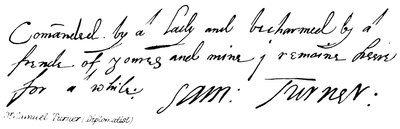 Comanded by a Lady and becharmed by a
frende of yowres and mine j remaine heere
for a while: Sam: Turner:
(Dr. Samuel Turner, Diplomatist)